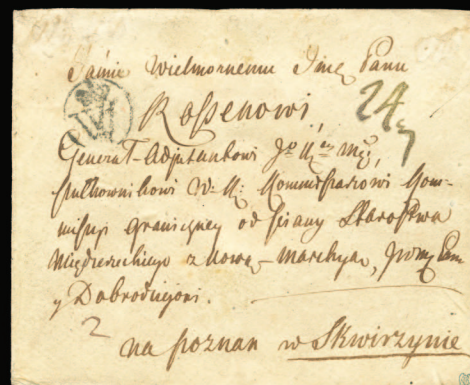 Jaśnie Wielmożnemu Jmę Panu
Rossenowi,
24
Generał-Adjutantowi
Pułkownikowi W. K: Kommissarzowi Kom-
missyi graniczney od ściany Starostwa
Międzyrzeckiego z nową-marchyą, Panu
y Dobrodziejowi.
2
na poznan w Skwirzynie